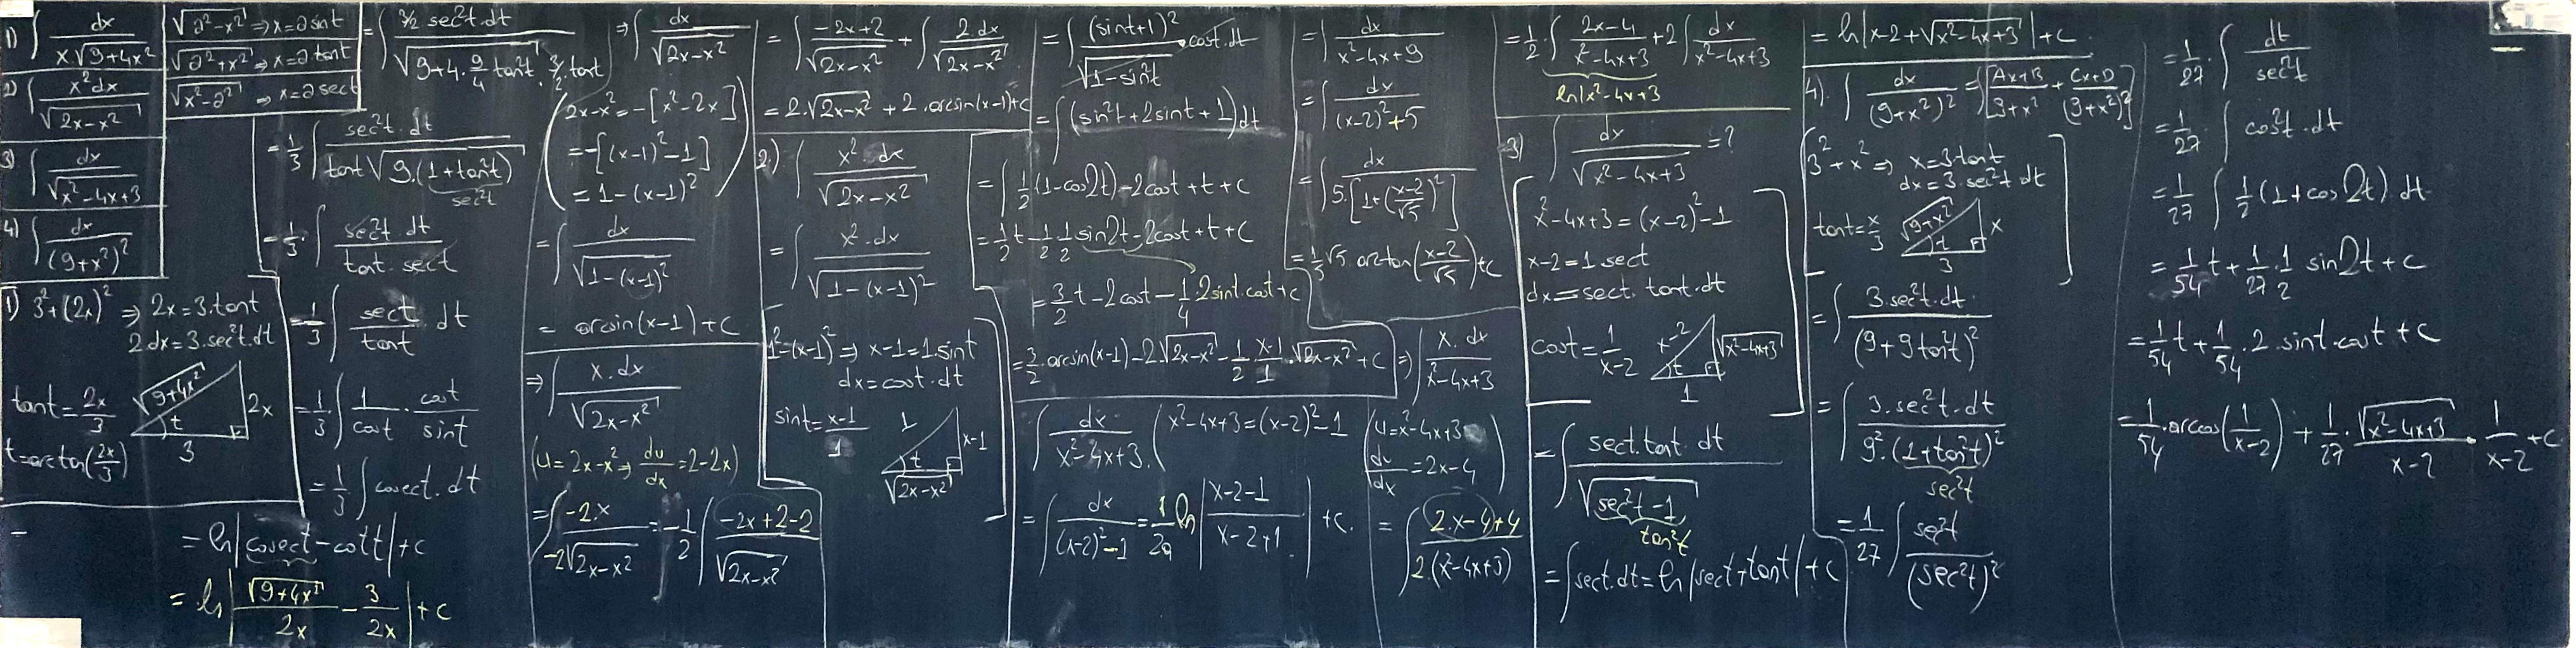 1) ∫ dx / x√9+4x²
2) ∫ x²dx / √2x-x²
3) ∫ dx / √x²-4x+3
4) ∫ dx / (9+x²)²
√a²-x² ⇒ x=a sint
√a²+x² ⇒ x=a tant
√x²-a² ⇒ x=a sect
1) 3²+(2x)² ⇒ 2x=3.tant
2dx=3.sec²t.dt
tant=2x/3
√9+4x² 2x t 3
t=arctan(2x/3)
=∫ 3/2 sec²t.dt / √9+4.9/4 tan²t . 3/2.tant
=1/3 ∫ sec²t.dt / tant √9.(1+tan²t)
sec²t
=1/3.∫ sec²t.dt / tant.sect
=1/3 ∫ sect/tant dt
=1/3.∫ 1/cost . cost/sint
=1/3 ∫ cosect.dt
=ln|cosect-cott|+c
=ln|√9+4x²/2x - 3/2x|+c
⇒∫ dx / √2x-x²
(2x-x²=-[x²-2x]
=-[(x-1)²-1]
=1-(x-1)²)
=∫ dx / √1-(x-1)²
= arcsin(x-1)+c
⇒∫ x.dx / √2x-x²
(u=2x-x² ⇒ du/dx=2-2x)
=∫ -2.x / -2√2x-x² = -1/2 ∫ -2x+2-2 / √2x-x²
=∫ -2x+2 / √2x-x² + ∫ 2.dx / √2x-x²
=2.√2x-x² + 2.arcsin(x-1)+c
2.) ∫ x².dx / √2x-x²
=∫ x².dx / √1-(x-1)²
1²-(x-1)² ⇒ x-1=1.sint
dx=cost.dt
sint=x-1/1
1 x-1 t √2x-x²
=∫ (sint+1)² / √1-sin²t .cost.dt
=∫(sin²t+2sint+1)dt
=∫1/2(1-cos2t)-2cost+t+c
=1/2t-1/2.1/2sin2t-2cost+t+c
=3/2t-2cost-1/4.2sint.cost+c
=3/2.arcsin(x-1)-2√2x-x²-1/2.x-1/1.√2x-x²+c
∫ dx / x²-4x+3. (x²-4x+3=(x-2)²-1
=∫ dx / (x-2)²-1 = 1/2a ln|x-2-1 / x-2+1|+c.
=∫ dx / x²-4x+9
=∫ dx / (x-2)²+5
=∫ dx / 5.[1+(x-2/√5)²]
=1/5.√5.arctan(x-2/√5)+c
⇒∫ x.dx / x²-4x+3
(u=x²-4x+3
du/dx=2x-4)
=∫ 2.x-4+4 / 2.(x²-4x+3)
=1/2.∫ 2x-4 / x²-4x+3 +2∫ dx / x²-4x+3
ln|x²-4x+3
3) ∫ dx / √x²-4x+3 =?
x²-4x+3=(x-2)²-1
x-2=1 sect
dx=sect.tant.dt
cost=1/x-2
x-2 √x²-4x+3 t 1
=∫ sect.tant.dt / √sec²t-1
tan²t
=∫sect.dt=ln|sect+tant|+c
=ln|x-2+√x²-4x+3|+c
4). ∫ dx / (9+x²)² =∫[Ax+B / 9+x² + Cx+D / (9+x²)²]
3²+x² ⇒ x=3.tant
dx=3.sec²t dt
tant=x/3
√9+x² x t 3
=∫ 3.sec²t.dt. / (9+9tan²t)²
=∫ 3.sec²t.dt / 9².(1+tan²t)²
sec²t
=1/27 ∫ sec²t / (sec²t)²
=1/27.∫ dt / sec²t
=1/27.∫ cos²t.dt
=1/27 ∫ 1/2(1+cos2t).dt
=1/54t+1/27.1/2 sin2t+c
=1/54t+1/54.2.sint.cost+c
=1/54.arccos(1/x-2)+1/27.√x²-4x+3 / x-2 . 1/x-2+c